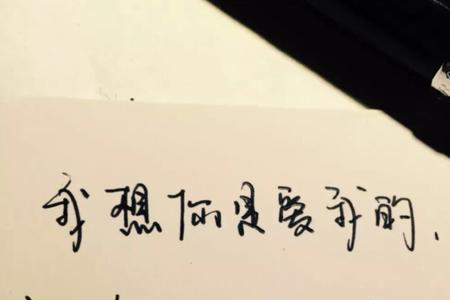 我想你是爱我的,